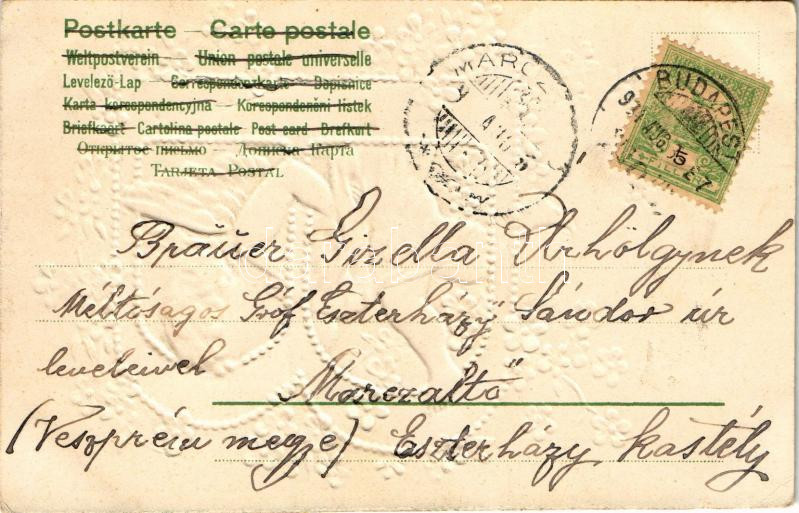 Postkarte — Carte postale
Weltpostverein — Union postale universelle
Levelező-Lap — Correspondenzkarte — Dopisnice
Karta korespondencyjna — Korespondenční listek
Briefkaart — Cartolina postale — Post card — Brefkort
Открытое письмо — Дописна Карта
Tarjeta Postal
MARCZ
BUDAPEST
5
Bräuer Gizella Úrhölgynek
Méltóságos Gróf Eszterházy Sándor úr
leveleivel
Marczaltő
(Veszprém megye) Eszterházy kastély